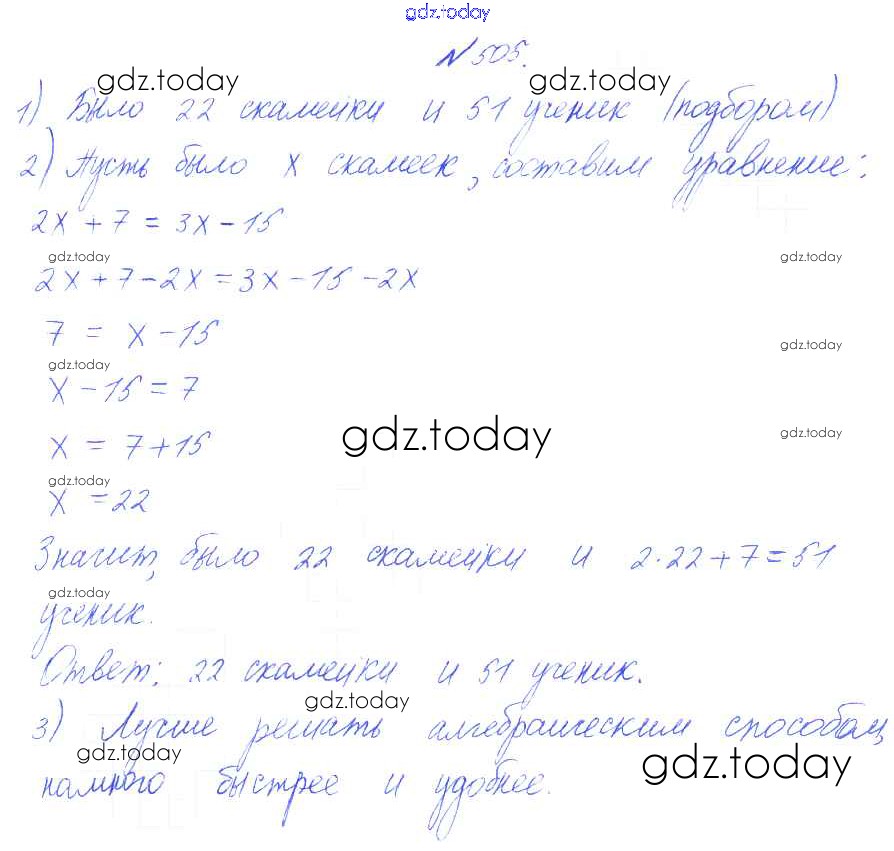 gdz.today
№ 505.
gdz.today gdz.today
1) Было 22 скамейки и 51 ученик (подбором)
2) Пусть было x скамеек, составим уравнение:
2x + 7 = 3x - 15
gdz.today gdz.today
2x + 7 - 2x = 3x - 15 - 2x
7 = x - 15
gdz.today gdz.today
x - 15 = 7
gdz.today gdz.today
x = 7 + 15
gdz.today
x = 22
Значит, было 22 скамейки и 2·22 + 7 = 51
gdz.today
ученик.
Ответ: 22 скамейки и 51 ученик.
gdz.today
3) Лучше решать алгебраическим способом,
gdz.today gdz.today
намного быстрее и удобнее.